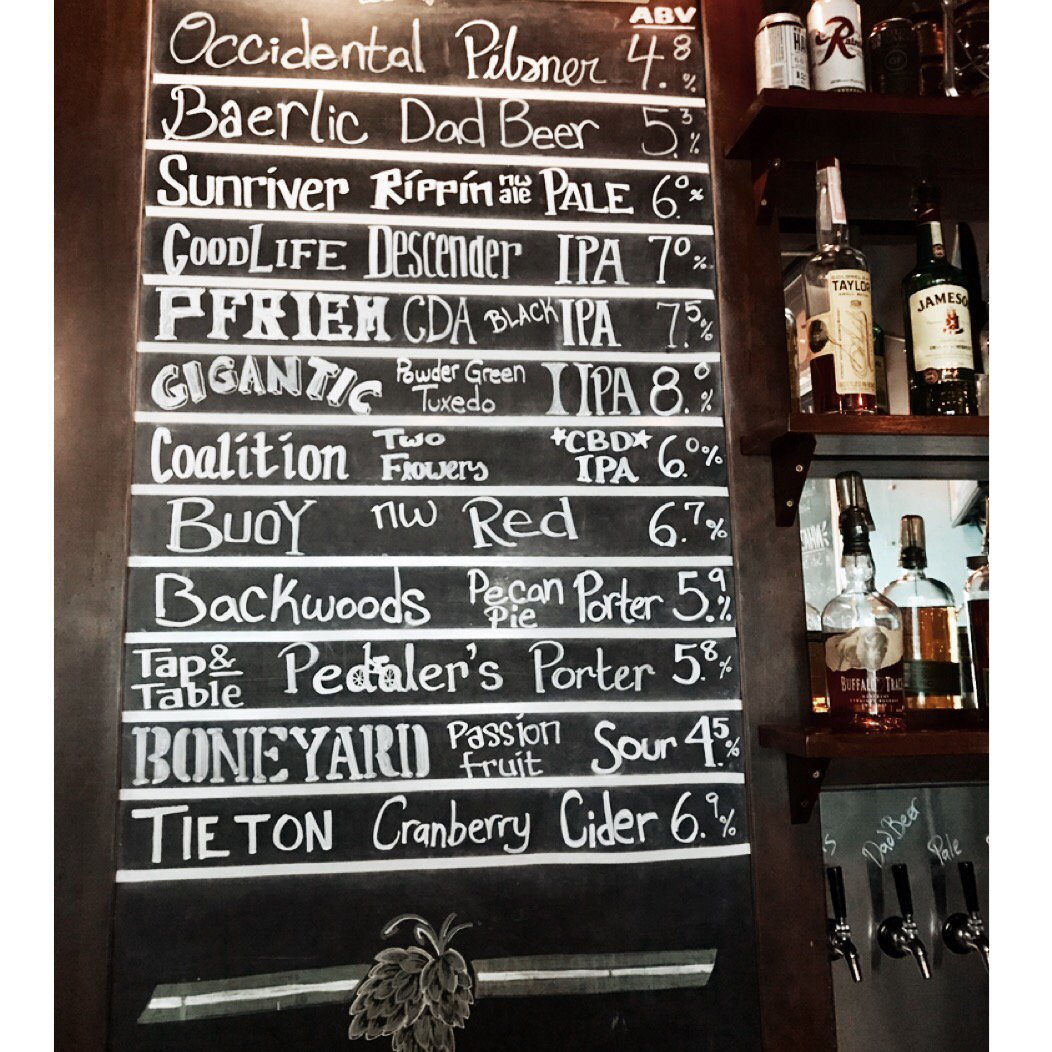 ABV
Occidental Pilsner 4.8%
Baerlic Dad Beer 5.3%
Sunriver Rippin nw ale PALE 6.0%
GoodLife Descender IPA 7.0%
PFRIEM CDA BLACK IPA 7.5%
GIGANTIC Powder Green Tuxedo IIPA 8.0%
Coalition Two Flowers *CBD* IPA 6.0%
Buoy nw Red 6.7%
Backwoods Pecan Pie Porter 5.9%
Tap & Table Pedaler's Porter 5.8%
BONEYARD Passion fruit Sour 4.5%
TIETON Cranberry Cider 6.9%
R
TAYLOR
JAMESO
BUFFALO TRAC
Dad Beer
Pale